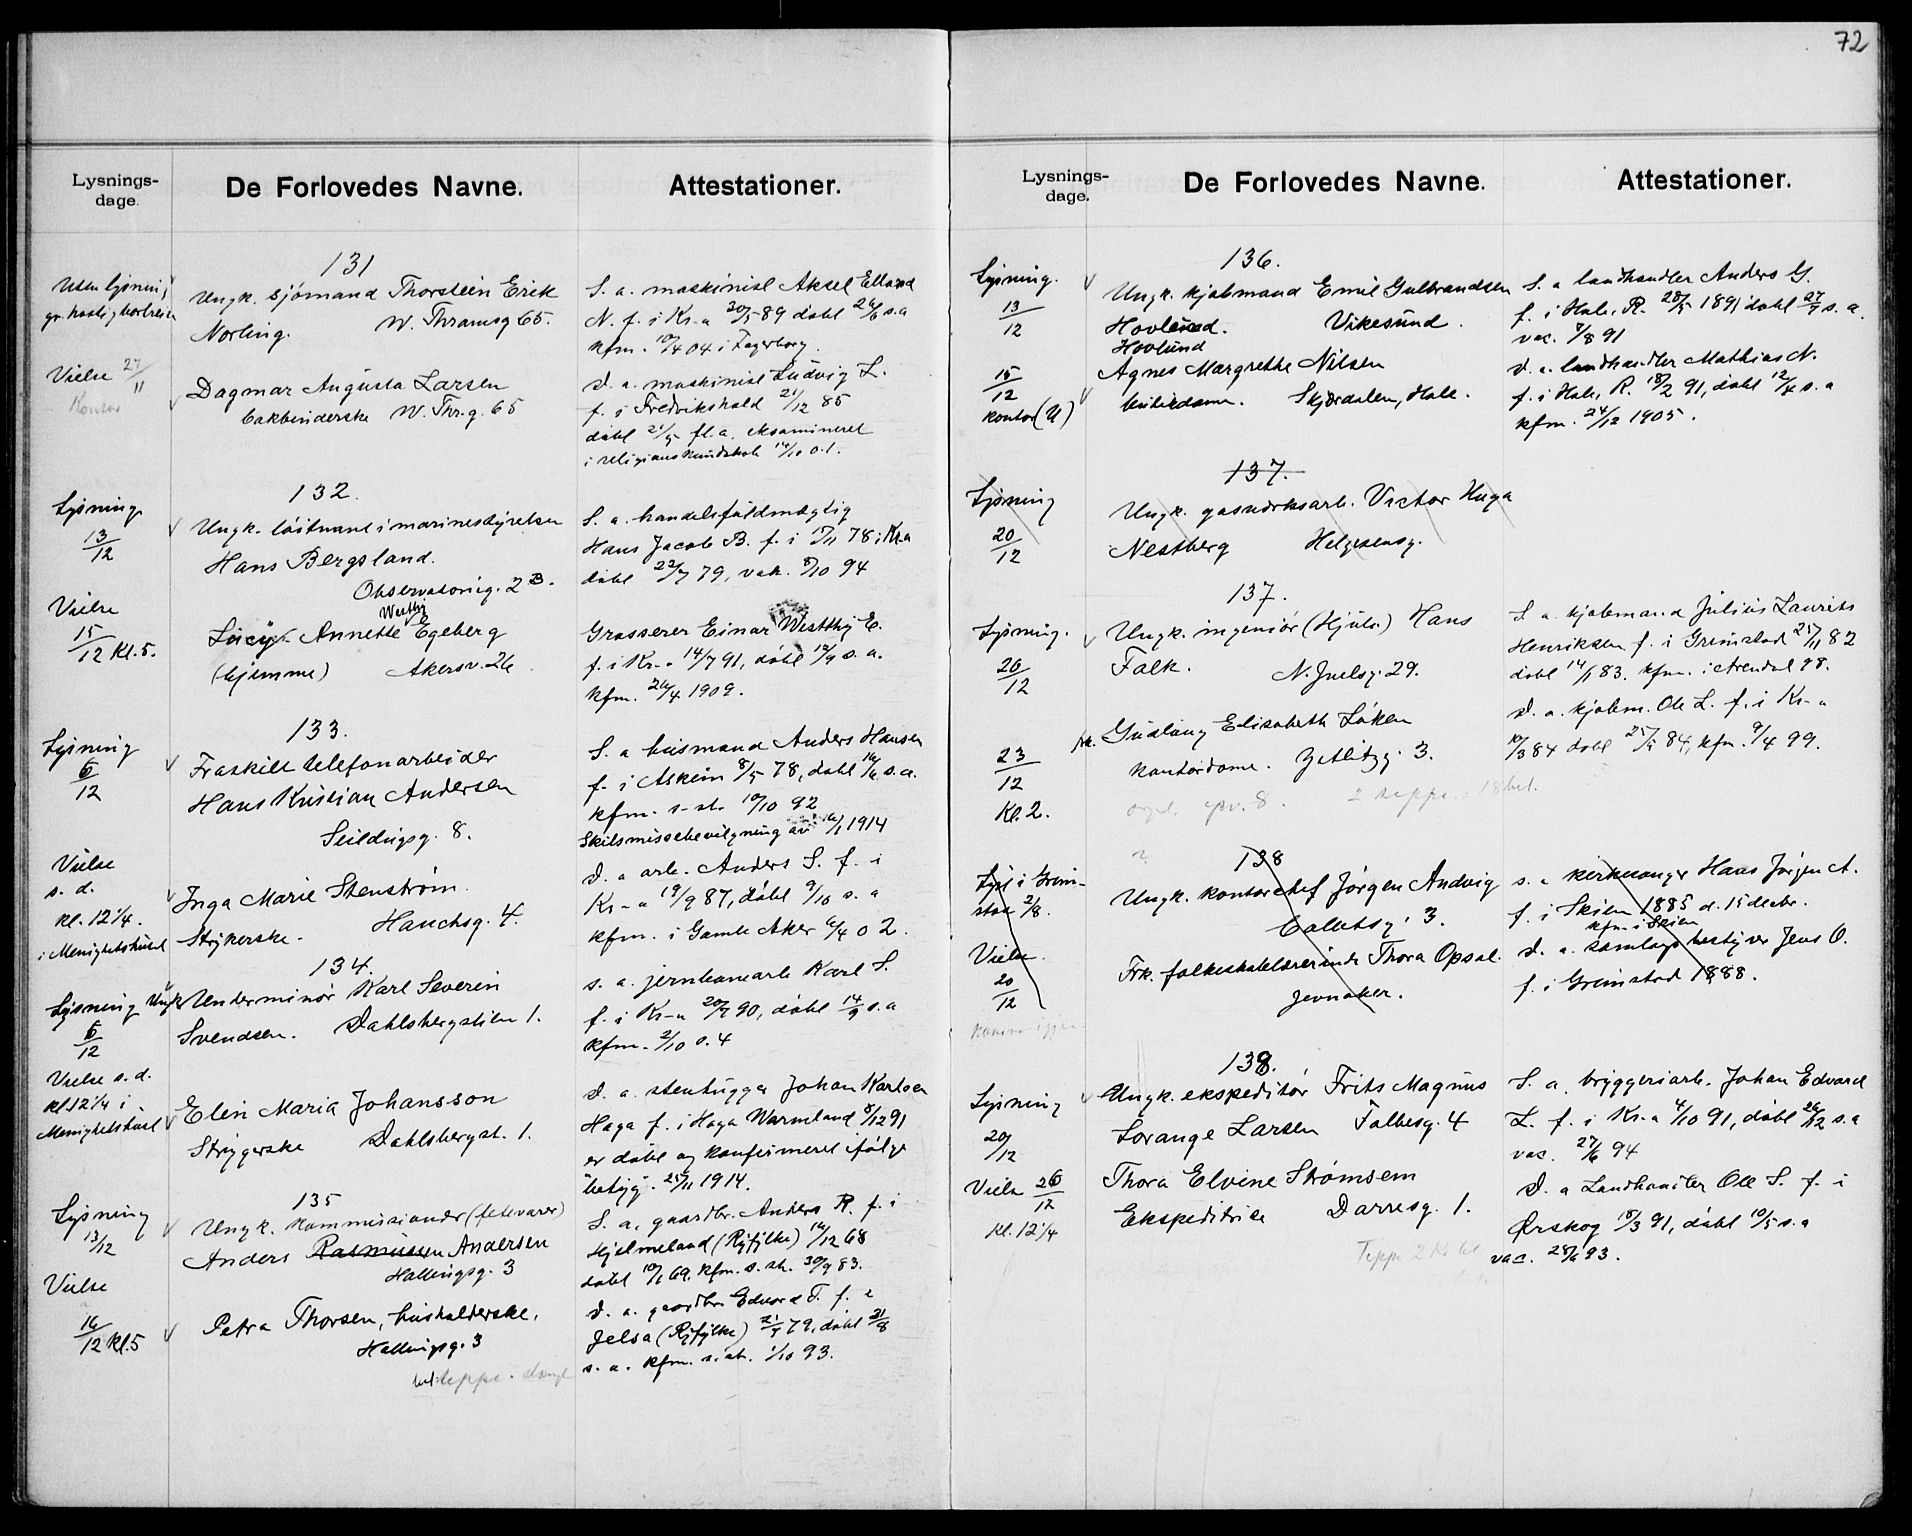 72
Lysnings-
dage.
De Forlovedes Navne.
Attestationer.
131
Uten lysning
gr. hastig bortreise
Vielse 27/11
Kontor
Ungk. sjømand Thorstein Erik
Norling. W. Thranesg 65.
Dagmar Augusta Larsen
W. Thr.g. 65
S. a. maskinist Aksel
N. f. i Kr.a 30/5 89 døbt 26/6 s.a
kfm. 10/4 04 i Fagerborg.
D. a. maskinist Ludvig L.
f. i Fredrikshald 21/12 85
døbt 21/5 fl.a. eksamineret
i religionskundskab 14/10 o.l.
132.
Lysning
13/12
Vielse
15/12 Kl. 5.
Ungk. løitnant i marinestyrelsen
Hans Bergsland.
Observatorieg. 2 B.
Westby
Lucy Annette Egeberg
(hjemme) Akersv. 26
S. a. handelsfuldmægtig
Hans Jacob B. f. i 17/11 78 i Kr.a
døbt 22/7 79, vak. 8/10 94
Grosserer Einar Westthy E.
f. i Kr.a 14/7 91, døbt 12/9 s. a.
kfm. 26/4 1909.
133.
Lysning
6/12
Vielse
s. d.
kl. 12 1/4.
i Menighetshuset
Fraskilt telefonarbeider
Hans Kristian Andersen
Seildugsg. 8.
Inga Marie Stenstrøm.
Strykerske. Hauchsg. 4.
S. a husmand Anders Hansen
f. i Askim 8/5 78, døbt 16/6 s.a.
kfm. s. st. 10/10 92
Skilsmissebevilgning av 16/1 1914
D. a arb. Anders S. f. i
Kr-a 19/9 87, døbt 9/10 s. a
kfm. i Gamle Aker 6/4 02.
134.
Lysning
6/12
Vielse s. d.
kl 12 1/4 i
Menighetshuset
Ungk Underminør Karl Severin
Svendsen. Dahlsbergstien 1.
Elin Maria Johansson
Strygerske Dahlsbergst. 1.
s. a. jernbanearb Karl S.
f. i Kr-a 20/7 90, døbt 14/9 s.a
kfm. 2/10 o.4
D. a. stenhugger Johan Karlsen
Haga f. i Haga Warmland 8/12 91
er døbt og konfirmeret ifølge
"betyg". 25/11 1914.
135
Lysning
13/12
Vielse
16/12 Kl. 5
Ungk. kommissionær (fetevarer)
Anders Rasmussen Andersen
Hallingsg. 3
Petra Thorsen, husholderske,
Hallingsg. 3
teppe.
S. a. gaardbr. Anders R. f. i
Hjelmeland (Ryfylke) 16/12 68
døbt 10/1 69. kfm. s. st. 30/9 83.
D. a. gaardbr. Edvard T. f. i
Jelsa (Ryfylke) 21/7 79, døbt 31/8
s. a. kfm. s. st. 1/10 93.
Lysnings-
dage.
De Forlovedes Navne.
Attestationer.
136.
Lysning.
13/12
15/12
kontor (U)
Ungk. kjøbmand Emil Gulbrandsen
Hovlund. Vikesund.
Hovlund
Agnes Margrethe Nilsen
butikdame. Skjærdalen, Hole.
S. a landhandler Anders G.
f. i Hole, R. 28/5 1891 døbt 27/7 s. a.
vac. 7/8 91
D. a. landhandler Mathias N.
f. i Hole, R. 18/2 91, døbt 12/4 s. a
kfm. 24/12 1905.
137.
Lysning
20/12
Ungk. gasverksarb. Victor Hugo
Nestberg Helgesensg.
137.
Lysning.
20/12
23/12
Kl. 2.
Ungk. ingeniør (Hjulm.) Hans
Falk. N. Juelsg. 29.
frk. Gudlaug Elisabeth Løken
kontordame. Zetlitzg. 3.
S. a. kjøbmand Julius Laurits
Henriksen f. i Grimstad 25/11 82
døbt 14/1 83. kfm. i Arendal 98.
D. a. kjøbm. Ole L. f. i Kr-a
10/3 84 døbt 25/5 84, kfm. 9/4 99.
138
Lyst i Grim-
stad 2/8.
Vielse.
20/12
Ungk. kontorchef Jørgen Andvig
Colletsg. 3.
Frk. folkeskolelærerinde Thora Opsal.
Jevnaker.
s. a kirkesanger Hans Jørgen A.
f. i Skien 1885 d. 15 decbr.
kfm. i Skien
D. a. samlagsbestyrer Jens O.
f. i Grimstad 1888.
138.
Lysning
20/12
Vielse 26/12
Kl. 12 1/4
Ungk. ekspeditør Frits Magnus
Lorange Larsen Falbesg. 4
Thora Elvine Strømsem
Ekspeditrise Darresg. 1.
S. a. bryggeriarb. Johan Edvard
L. f. i Kr.a 4/10 91, døbt 26/12 s.a
vac. 27/6 94
D. a Landhandler Ole S. f. i
Ørskog 18/3 91, døbt 10/5 s. a
vac. 28/6 93.